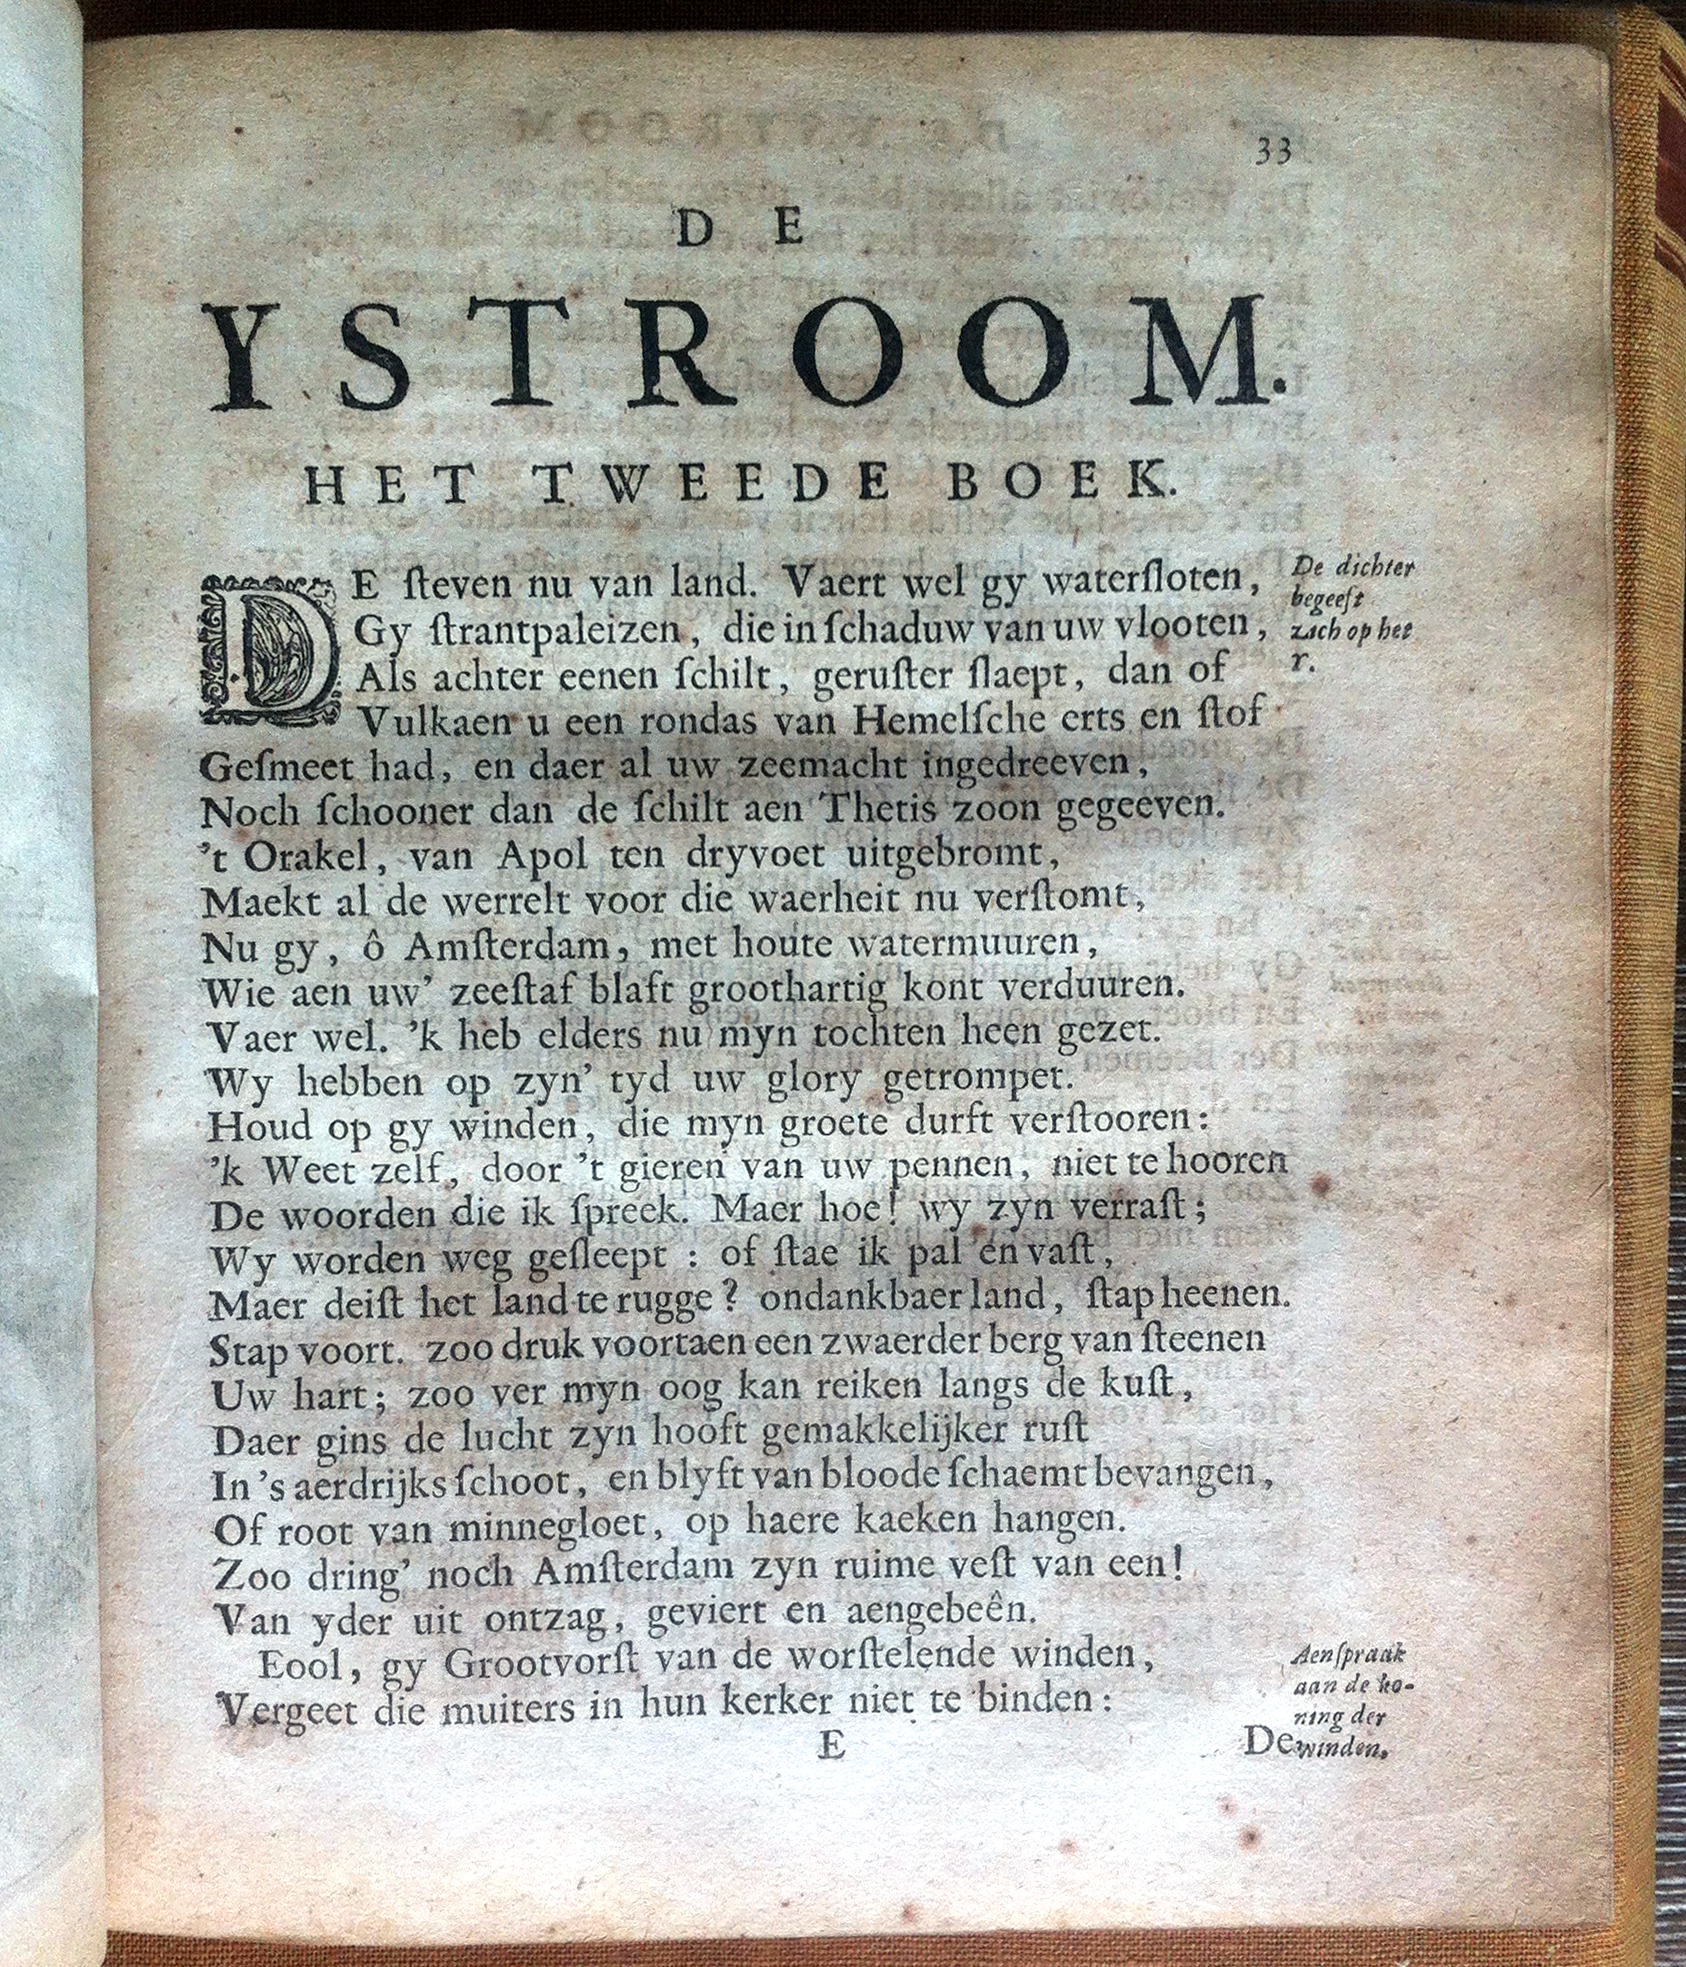 33
DE
YSTROOM.
HET TWEEDE BOEK.
DE ſteven nu van land. Vaert wel gy waterſloten,
Gy ſtrantpaleizen, die in ſchaduw van uw vlooten,
Als achter eenen ſchilt, geruſter ſlaept, dan of
Vulkaen u een rondas van Hemelſche erts en ſtof
Geſmeet had, en daer al uw zeemacht ingedreeven,
Noch ſchooner dan de ſchilt aen Thetis zoon gegeeven.
't Orakel, van Apol ten dryvoet uitgebromt,
Maekt al de werrelt voor die waerheit nu verſtomt,
Nu gy, ô Amſterdam, met houte watermuuren,
Wie aen uw' zeeſtaf blaft groothartig kont verduuren.
Vaer wel. 'k heb elders nu myn tochten heen gezet.
Wy hebben op zyn' tyd uw glory getrompet.
Houd op gy winden, die myn groete durft verſtooren:
'k Weet zelf, door 't gieren van uw pennen, niet te hooren
De woorden die ik ſpreek. Maer hoe! wy zyn verraſt;
Wy worden weg geſleept : of ſtae ik pal en vaſt,
Maer deiſt het land te rugge? ondankbaer land, ſtap heenen.
Stap voort. zoo druk voortaen een zwaerder berg van ſteenen
Uw hart; zoo ver myn oog kan reiken langs de kuſt,
Daer gins de lucht zyn hooft gemakkelijker ruſt
In 's aerdrijks ſchoot, en blyft van bloode ſchaemt bevangen,
Of root van minnegloet, op haere kaeken hangen.
Zoo dring' noch Amſterdam zyn ruime veſt van een!
Van yder uit ontzag, geviert en aengebeên.
Eool, gy Grootvorſt van de worſtelende winden,
Vergeet die muiters in hun kerker niet te binden:
E
De
De dichter
begeeft
zich op het
Y.
Aenſpraak
aan de ko-
ning der
winden.